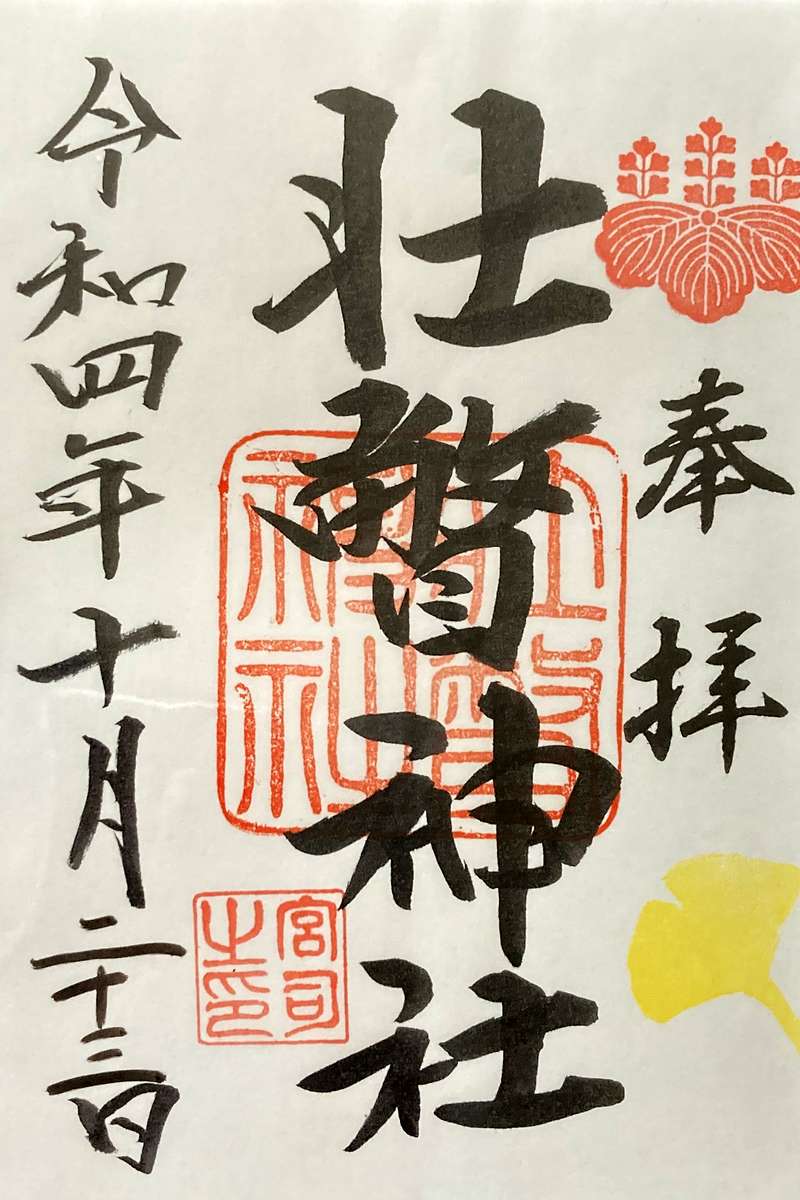 奉拝
壮瞥神社
宮司
之印
令和四年十月二十三日